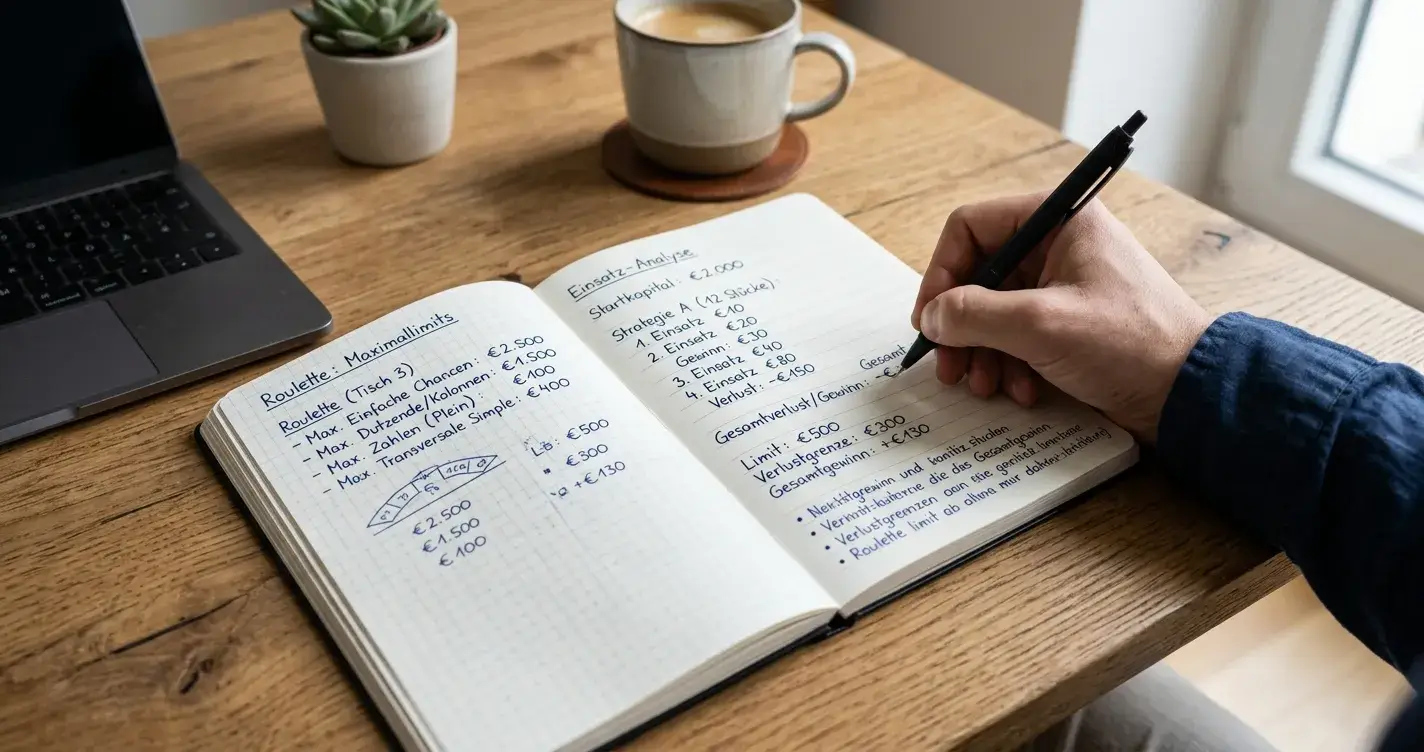 Roulette: Maximallimits
Roulette (Tisch 3)
- Max. Einfache Chancen: €2.500
- Max. Dutzende/Kolonnen: €1.500
- Max. Zahlen (Plein): €100
- Max. Transversale Simple: €400
€500
€300
+€130
€2.500
€1.500
€100
Einsatz-Analyse
Startkapital: €2.000
Strategie A (12 Stücke):
1. Einsatz €10
2. Einsatz €20
Gewinn: €30
3. Einsatz €40
4. Einsatz €80
Verlust: -€150
Gesamt
Gesamtverlust/Gewinn: -€
Limit: €500
Verlustgrenze: €300
Gesamtgewinn: +€130
• und
• die des Gesamtgewinn
• Verlustgrenzen die
• Roulette limit ab